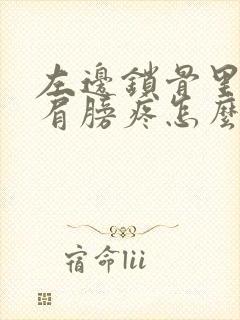 左邊鎖骨里
肩膀疼怎麼
宿命lii